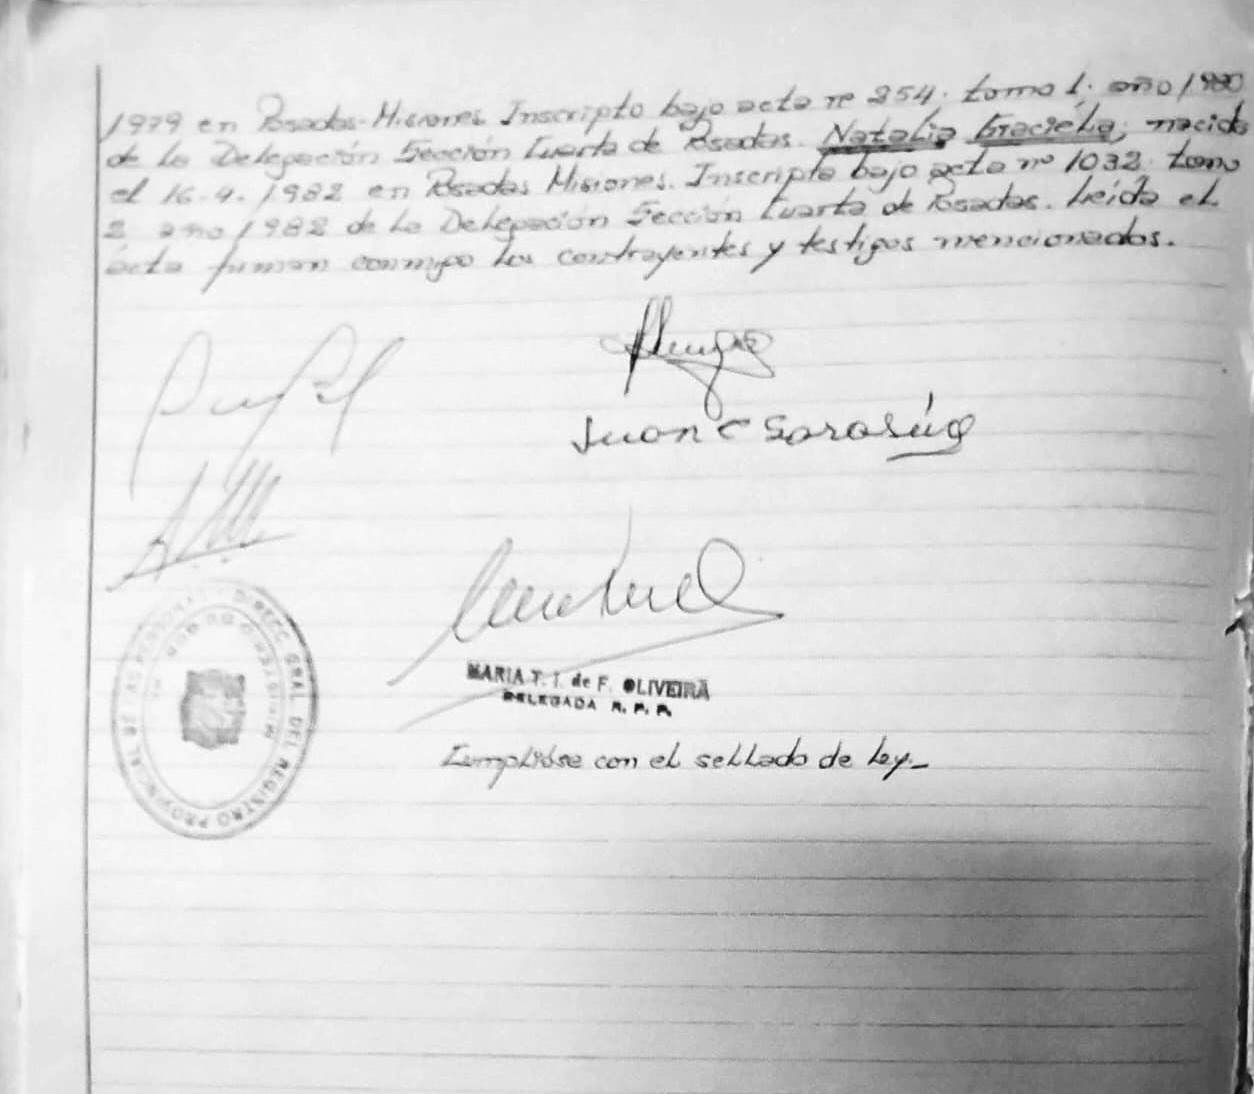 1979 en Posadas-Misiones Inscripto bajo acta nº 254. tomo 1. año 1980
de la Delegación Sección Cuarta de Posadas. Natalia Graciela, nacida
el 16-4-1982 en Posadas Misiones. Inscripta bajo acta nº 1032. tomo
2 año 1982 de la Delegación Sección Cuarta de Posadas. Leída el
acta firman conmigo los contrayentes y testigos mencionados.
Juan C Sarasúa
MARIA T. I. de F. OLIVEIRA
DELEGADA R. P. P.
DIRECC GRAL DEL REGISTRO PROVINCIAL DE LAS PERSONAS
MINISTERIO DE GOB
Cumplióse con el sellado de ley._